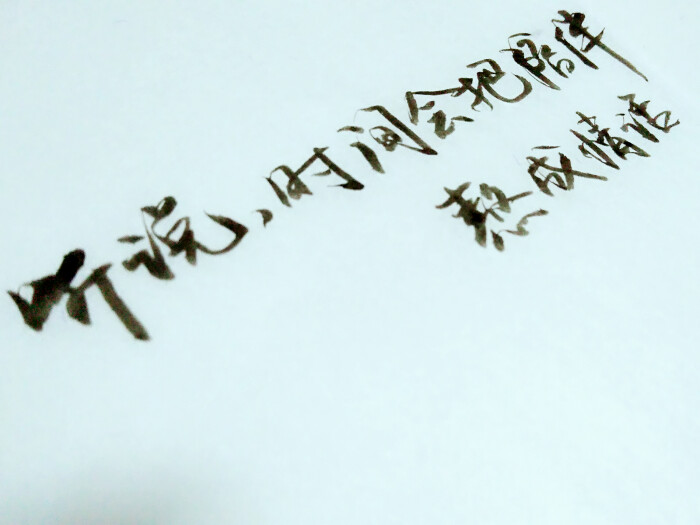 听说、时间会把陪伴
熬成情话